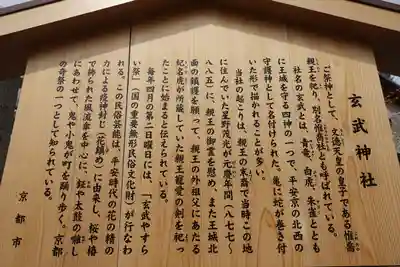 玄武神社
ご祭神として、文徳天皇の皇子である惟喬
親王を祀り、別名惟喬社とも呼ばれている。
社名の玄武とは、青竜、白虎、朱雀ととも
に王城を守る四神の一つで、平安京の北西の
守護神として名付けられた。亀に蛇が巻き付
いた形で描かれることが多い。
当社の起こりは、親王の末裔で当時この地
に住んでいた星野茂光が元慶年間（八七七〜
八八五）に、親王の御霊を慰め、また王城北
面の鎮護を願って、親王の外祖父にあたる
紀名虎が所蔵していた親王寵愛の剣を祀っ
たことに始まると伝えられている。
毎年四月の第二日曜日には、「玄武やすら
い祭」（国の重要無形民俗文化財）が行なわ
れる。この民俗芸能は、平安時代の花の精の
力による疫神封じ（花鎮め）に由来し、桜や椿
で飾られた風流傘を中心に、鉦や太鼓の囃し
にあわせて、鬼や小鬼が町を踊り歩く。京都
の奇祭の一つとして知られている。
京都市